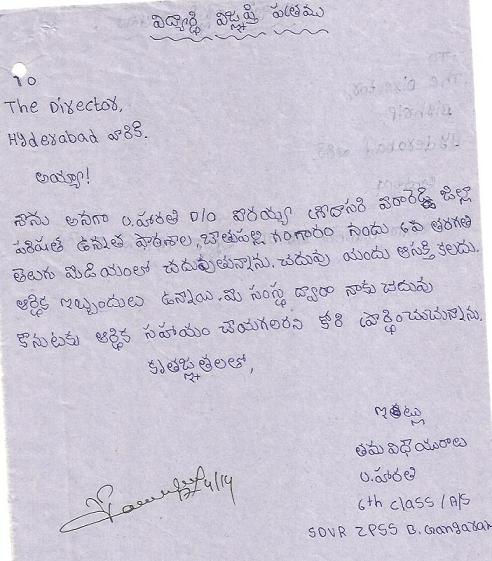 విద్యార్థి విజ్ఞప్తి పత్రము
To
The Director,
Hyderabad వారికి.
అయ్యా!
నేను అనగా U.హారతి D/O వీరయ్య గోదాసరి వీరారెడ్డి జిల్లా
పరిషత్ ఉన్నత పాఠశాల, గంగారం నందు 6వ తరగతి
తెలుగు మీడియంలో చదువుతున్నాను. చదువు యందు ఆసక్తి కలదు.
ఆర్థిక ఇబ్బందులు ఉన్నాయి. మీ సంస్థ ద్వారా నాకు చదువు
కొనుటకు ఆర్థిక సహాయం చేయగలరని కోరి ప్రార్థించుచున్నాను.
కృతజ్ఞతలతో,
ఇట్లు
తమ విధేయురాలు
U.హారతి
6th class /A/S
SDVR ZPSS B. Gangaram